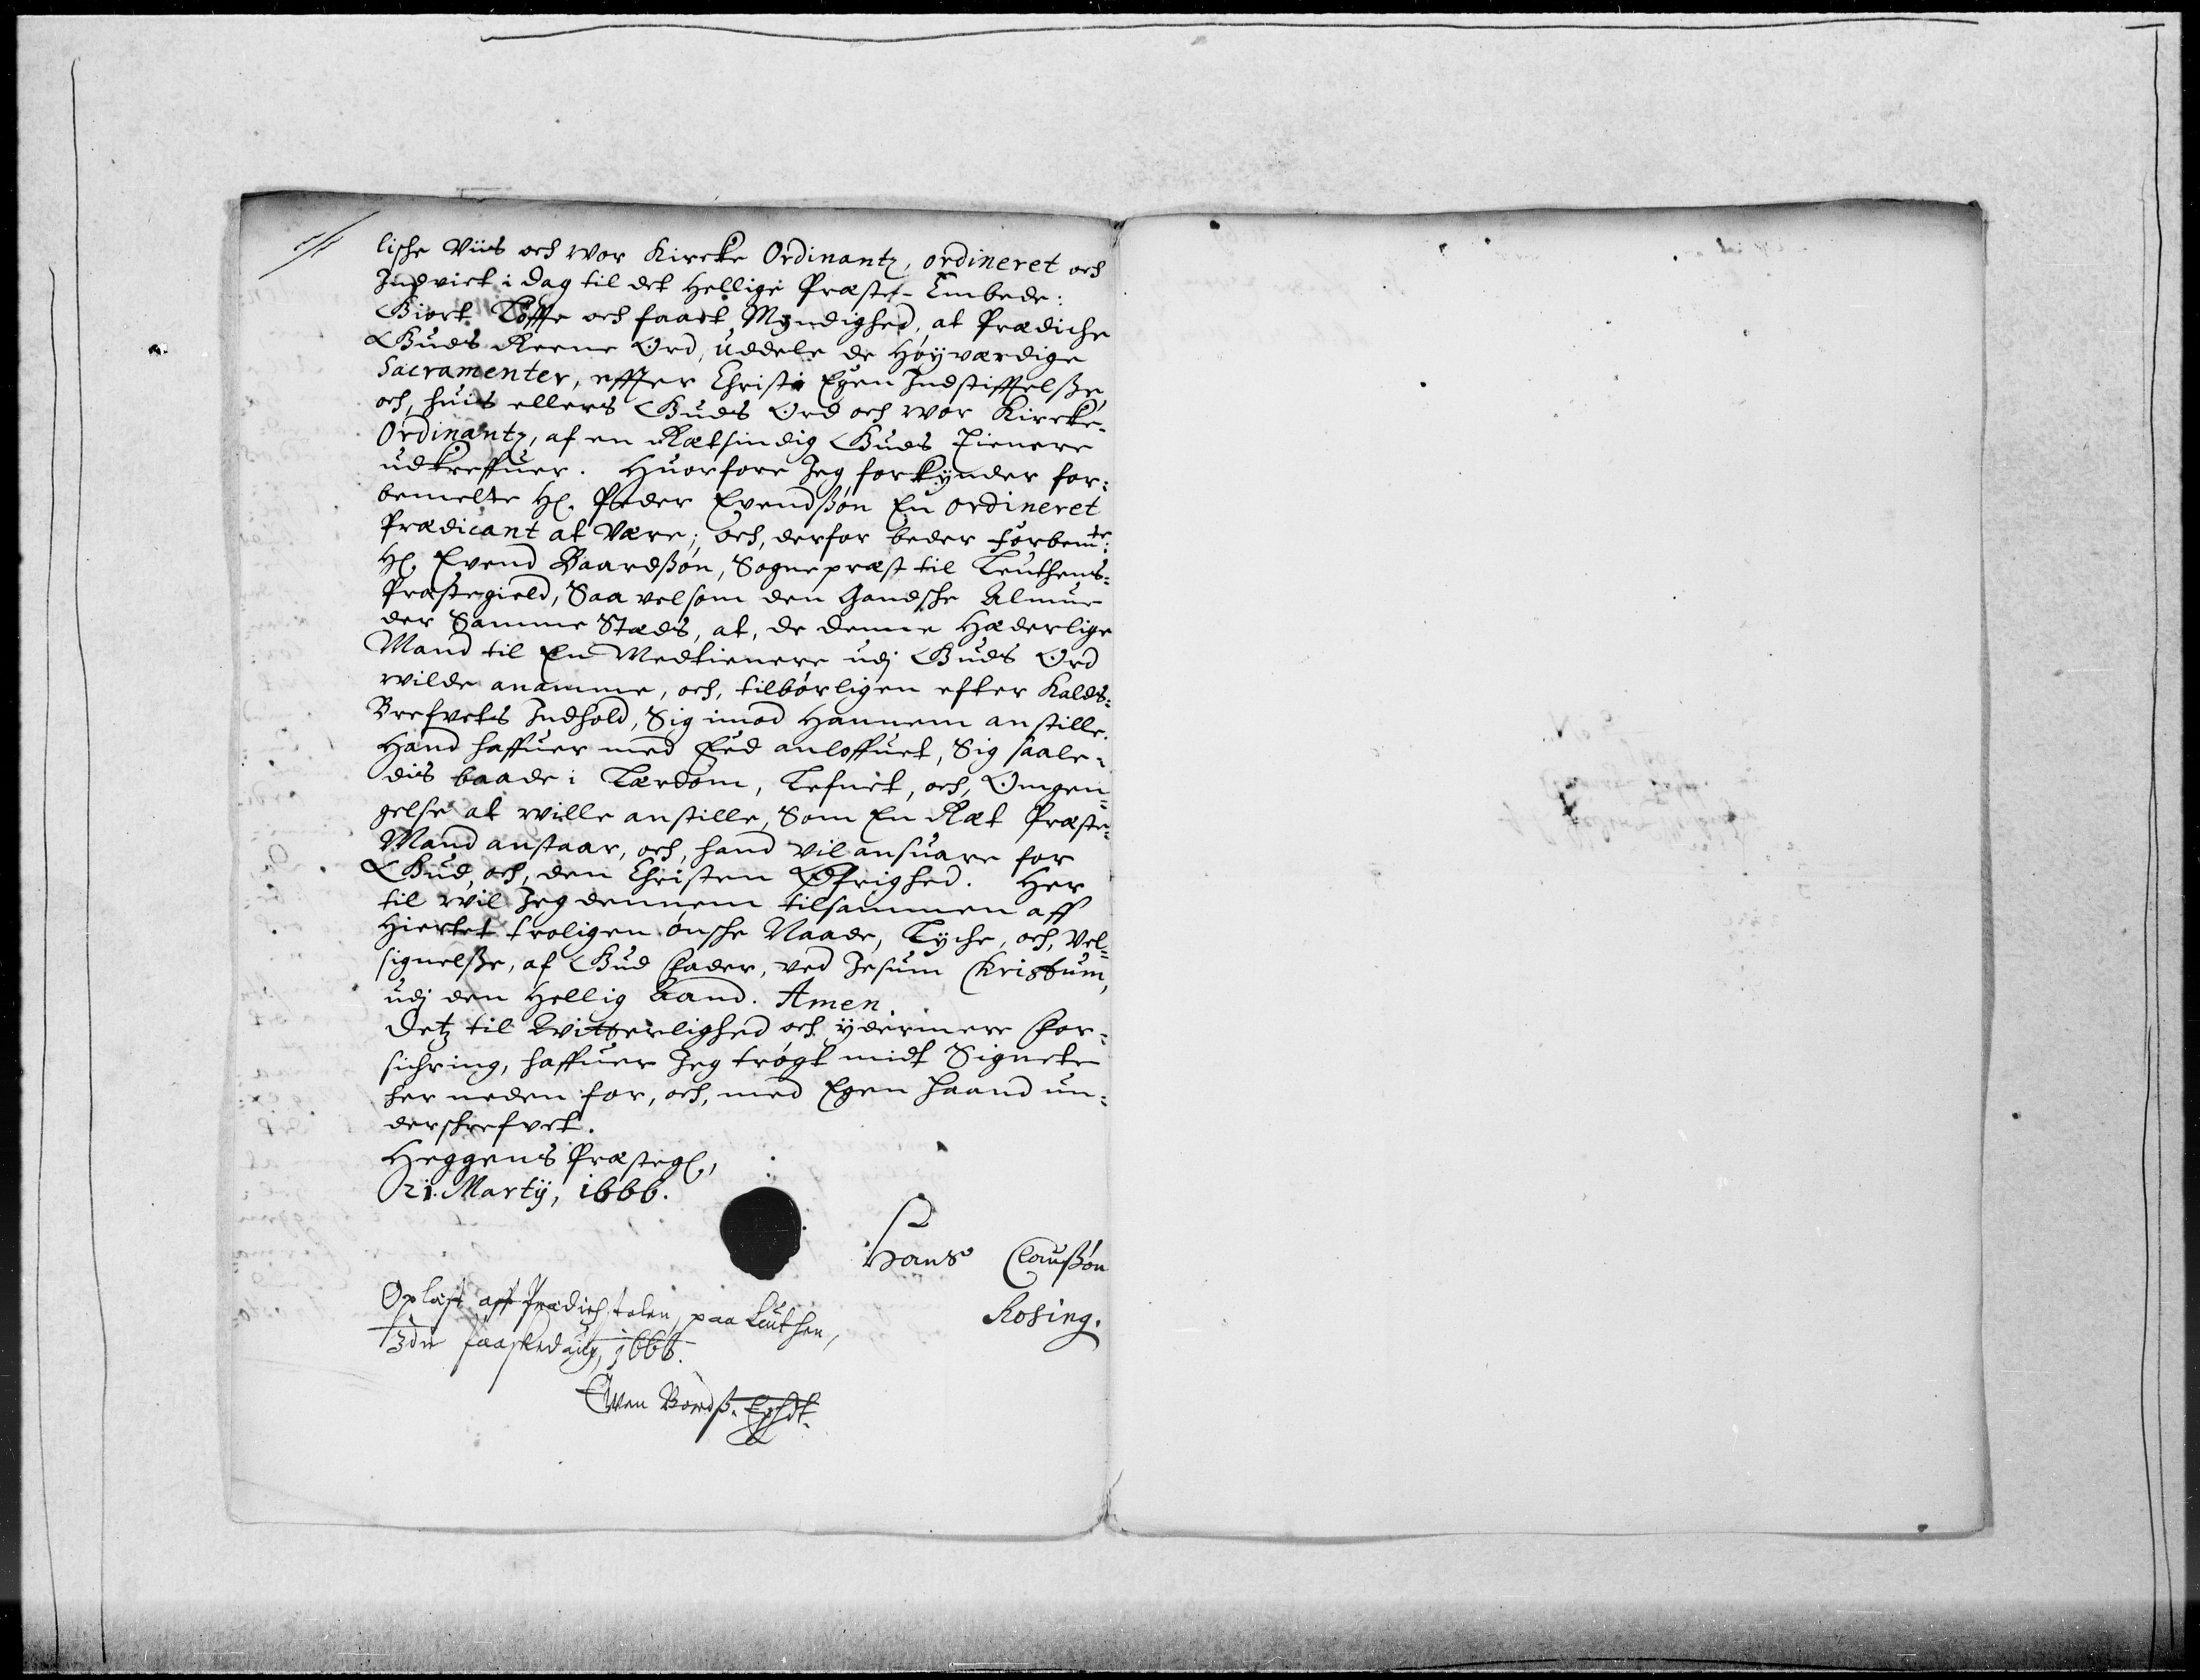 lische Viis och wor Kircke Ordinantz, ordineret och
Indviet i dag til det Hellige Præste-Embede:
Giort Løffte och faaet Myndighed, at Prædiche
Guds Reene Ord, uddele de Høyværdige
Sacramenter, effter Christi Egen Indstifftelsse,
och, huis ellers Guds Ord och wor Kircke-
Ordinantz, af en Rætsindig Guds Tienere
udkreffuer. Huorfore Jeg forkynder for:
bemelte H. Peder Evendssøn En ordineret
Prædicant at Være; och, derfor beder forbem:te
H. Evend Baardssøn, Sognepræst til Leuthens:
Præstegield, Saa velsom den Gandsche Almue
der Samme Stæds, at, de denne Hæderlige
Mand til En Medtienere udj Guds Ord
wilde anamme, och, tilbørligen efter Kalds:
Brefvets Indhold, Sig imod Hannem anstille.
Hand haffuer med Eed anloffuet, Sig saale:
dis baade i Lærdom, Lefnet, och, Omgen:
gelse at wille anstille, Som En Ræt Præste:
Mand anstaar, och, hand Vil ansuare for
Gud, och, den Christen Øfrighed. Her
til wil Jeg dennem tilsammen aff
Hiertet troligen ønsche Naade, Lyche, och, Vel:
signelsse, af Gud Fader, ved Jesum Christum,
udj den Hellig Aand. Amen.
Detz til Witterlighed och ydermere For:
sichring, haffuer Jeg trøgt midt Signete
her neden for, och, med Egen Haand un:
derschrefvet.
Heggens Præsteg.,
21. Martij, 1666.
Hans Claussøn
Rosing.
Oplæst aff Prædichstolen, paa Leuthen,
3die Paaskedag, 1666.
Even Bordss. Egh͞dt.